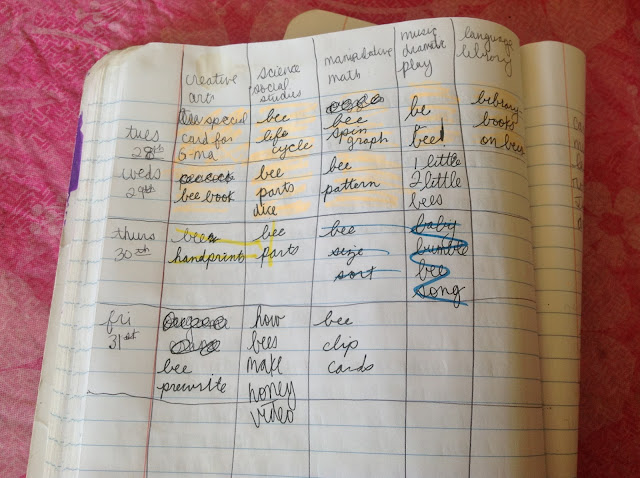 creative arts
science social studies
manipulative math
music dramatic play
language library
tues 28th
special card for G-ma
bee life cycle
bee spin graph
be a bee!
library books on bees
weds 29th
bee book
bee parts dice
bee pattern
1 little 2 little bees
thurs 30th
bee handprint
bee parts
bee size sort
baby bumble bee song
fri 31st
bee prewrite
how bees make honey video
bee clip cards